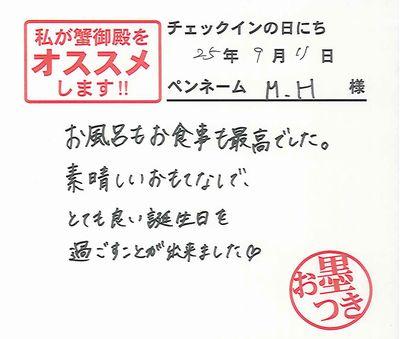 私が蟹御殿を
オススメ
します!!
チェックインの日にち
25年9月11日
ペンネーム M.H 様
お風呂もお食事も最高でした。
素晴しいおもてなしで、
とても良い誕生日を
過ごすことが出来ました♡
お墨つき